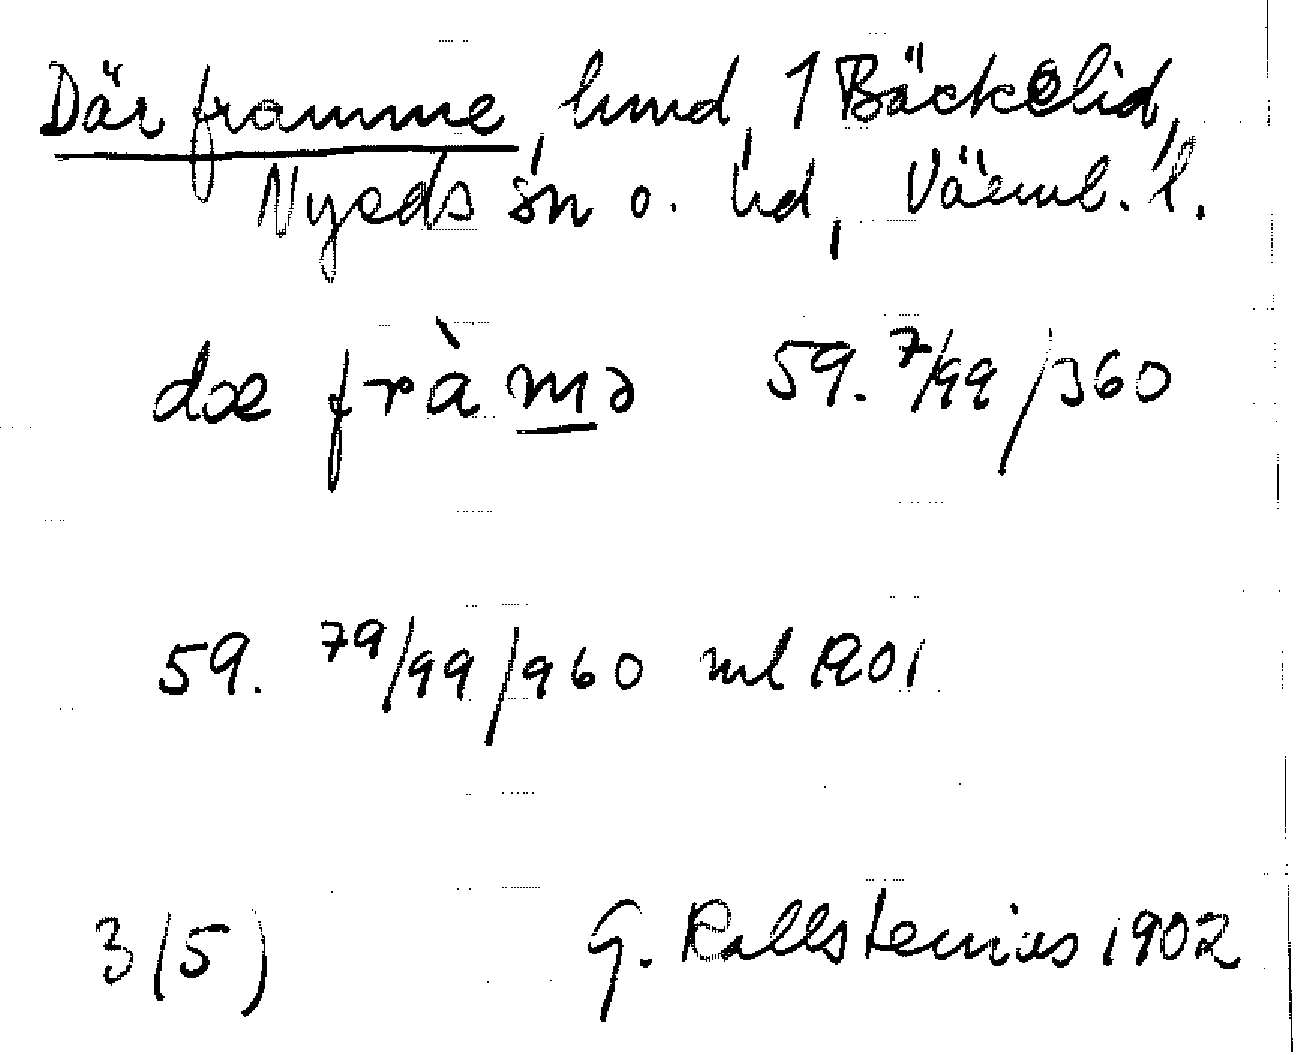 Där framme, hmd, 1 Bäckelid,
Nyeds sn o. hd, Värml. l.
dæ fràmə 59. 7/99 /360
59. 79/99/960 ml 1901
3 (5) G. Kallstenius 1902